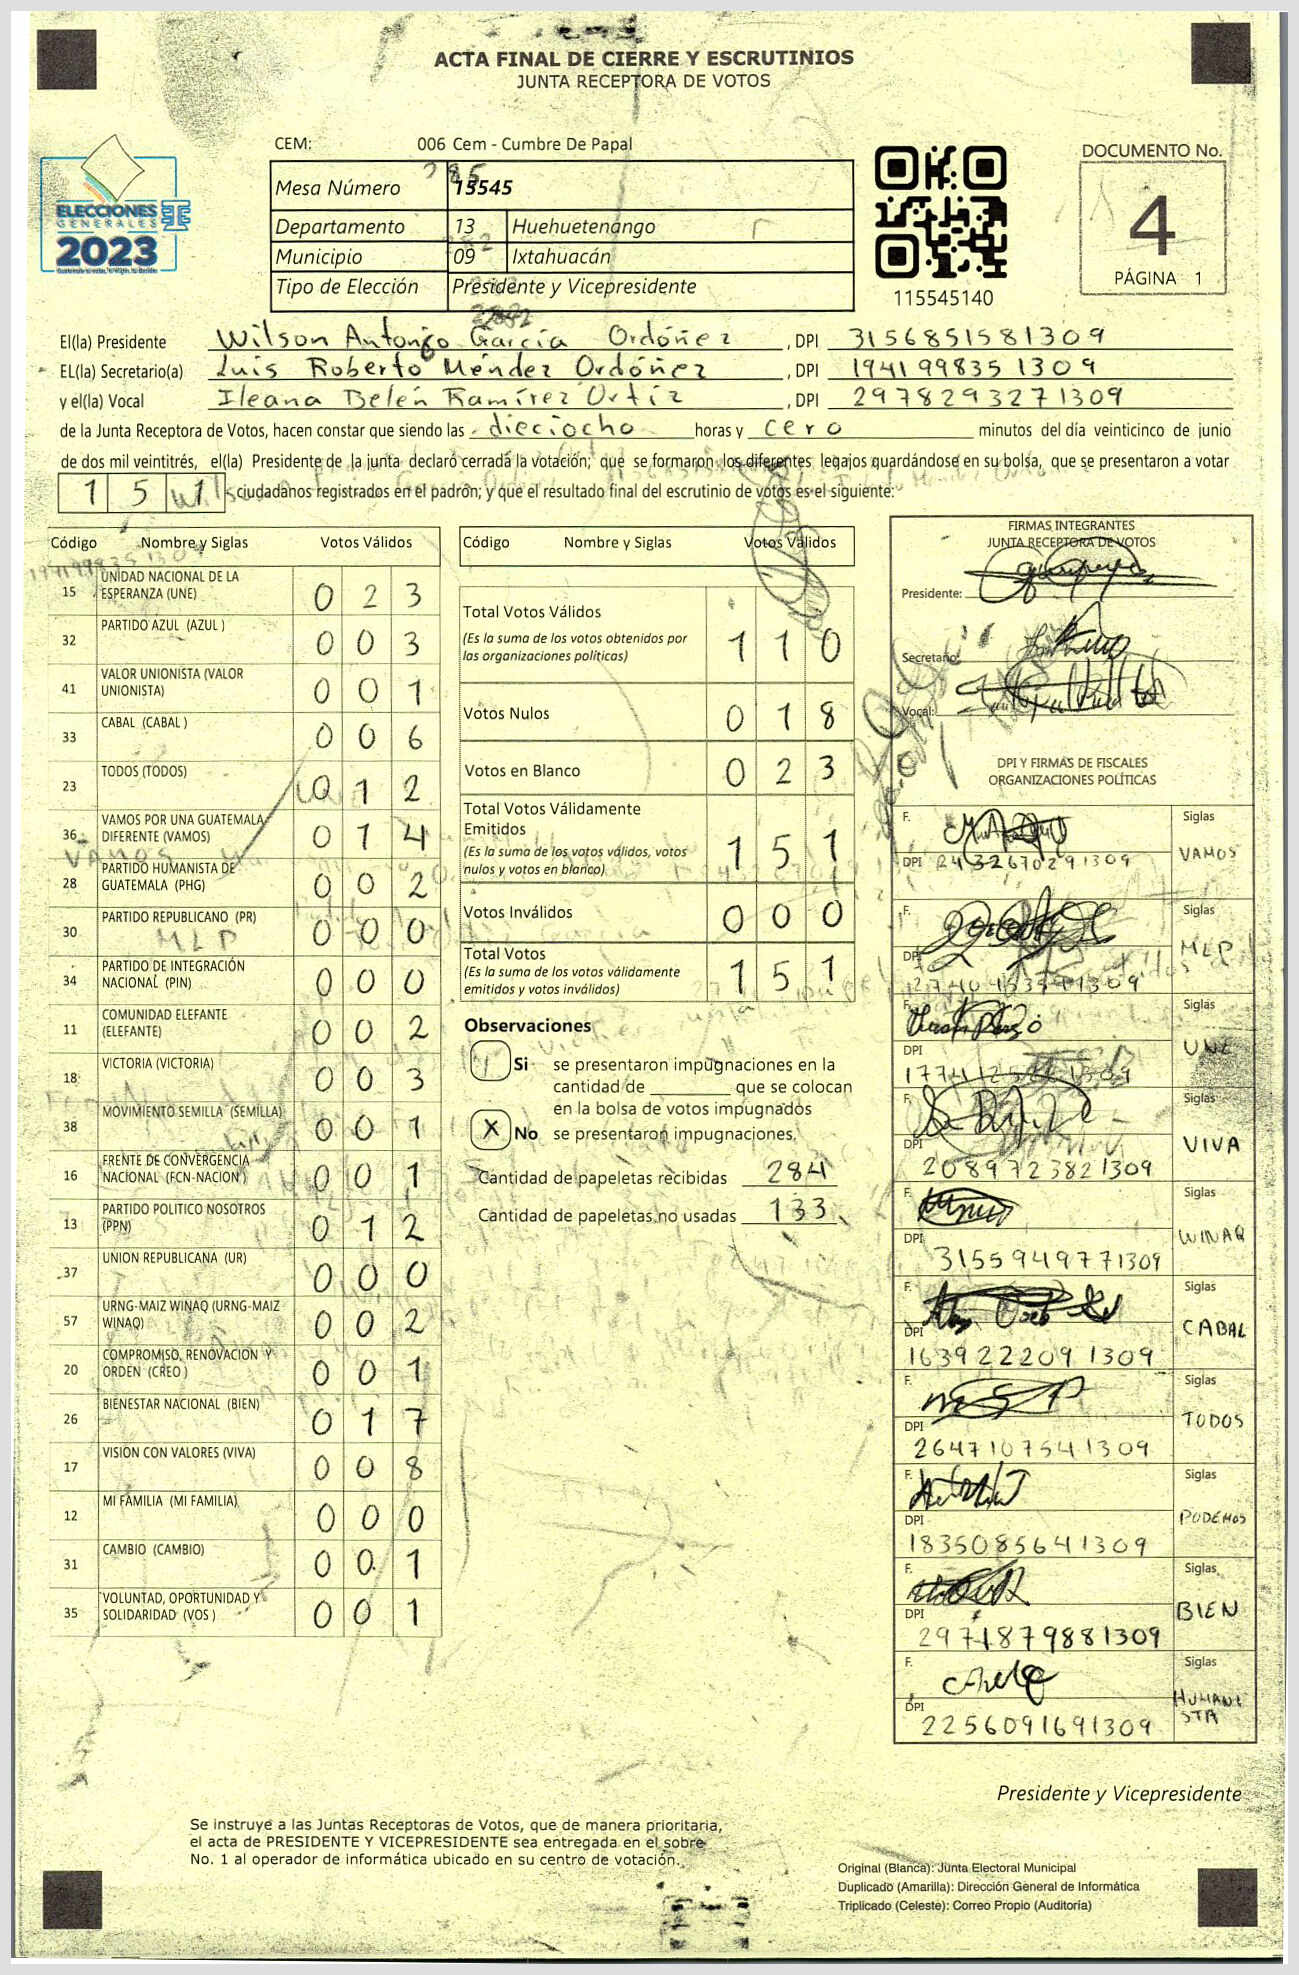 ACTA FINAL DE CIERRE Y ESCRUTINIOS
JUNTA RECEPTORA DE VOTOS
CEM: 006 Cem - Cumbre De Papal
Mesa Número 15545
Departamento 13 Huehuetenango
Municipio 09 Ixtahuacán
Tipo de Elección Presidente y Vicepresidente
ELECCIONES
GENERALES
2023
115545140
DOCUMENTO No.
4
PÁGINA 1
El(la) Presidente Wilson Antonio García Ordóñez, DPI 3156851581309
EL(la) Secretario(a) Luis Roberto Méndez Ordóñez, DPI 1941998351309
y el(la) Vocal Ileana Belén Ramírez Ortiz, DPI 2978293271309
de la Junta Receptora de Votos, hacen constar que siendo las dieciocho horas y cero minutos del día veinticinco de junio
de dos mil veintitrés, el(la) Presidente de la junta declaró cerrada la votación; que se formaron los diferentes legajos guardándose en su bolsa, que se presentaron a votar
1 5 1 ciudadanos registrados en el padrón; y que el resultado final del escrutinio de votos es el siguiente:
Código Nombre y Siglas Votos Válidos
15 UNIDAD NACIONAL DE LA ESPERANZA (UNE) 0 2 3
32 PARTIDO AZUL (AZUL ) 0 0 3
41 VALOR UNIONISTA (VALOR UNIONISTA) 0 0 1
33 CABAL (CABAL ) 0 0 6
23 TODOS (TODOS) 0 1 2
36 VAMOS POR UNA GUATEMALA DIFERENTE (VAMOS) 0 1 4
28 PARTIDO HUMANISTA DE GUATEMALA (PHG) 0 0 2
30 PARTIDO REPUBLICANO (PR) 0 0 0
34 PARTIDO DE INTEGRACIÓN NACIONAL (PIN) 0 0 0
11 COMUNIDAD ELEFANTE (ELEFANTE) 0 0 2
18 VICTORIA (VICTORIA) 0 0 3
38 MOVIMIENTO SEMILLA (SEMILLA) 0 0 1
16 FRENTE DE CONVERGENCIA NACIONAL (FCN-NACION ) 0 0 1
13 PARTIDO POLITICO NOSOTROS (PPN) 0 1 2
37 UNION REPUBLICANA (UR) 0 0 0
57 URNG-MAIZ WINAQ (URNG-MAIZ WINAQ) 0 0 2
20 COMPROMISO, RENOVACION Y ORDEN (CREO ) 0 0 1
26 BIENESTAR NACIONAL (BIEN) 0 1 7
17 VISIÓN CON VALORES (VIVA) 0 0 8
12 MI FAMILIA (MI FAMILIA) 0 0 0
31 CAMBIO (CAMBIO) 0 0 1
35 VOLUNTAD, OPORTUNIDAD Y SOLIDARIDAD (VOS ) 0 0 1
Código Nombre y Siglas Votos Válidos
Total Votos Válidos 1 1 0
(Es la suma de los votos obtenidos por
las organizaciones políticas)
Votos Nulos 0 1 8
Votos en Blanco 0 2 3
Total Votos Válidamente
Emitidos 1 5 1
(Es la suma de los votos válidos, votos
nulos y votos en blanco)
Votos Inválidos 0 0 0
Total Votos 1 5 1
(Es la suma de los votos válidamente
emitidos y votos inválidos)
Observaciones
Si se presentaron impugnaciones en la
cantidad de ________ que se colocan
en la bolsa de votos impugnados
X No se presentaron impugnaciones.
Cantidad de papeletas recibidas 284
Cantidad de papeletas no usadas 133
FIRMAS INTEGRANTES
JUNTA RECEPTORA DE VOTOS
Presidente:
Secretario:
Vocal:
DPI Y FIRMAS DE FISCALES
ORGANIZACIONES POLÍTICAS
F. Siglas
DPI 2432670291309 VAMOS
F. Siglas
DPI MLP
F. Siglas
DPI UNE
F. Siglas
DPI 2089723821309 VIVA
F. Siglas
DPI 3155949771309 WINAQ
F. Siglas
DPI 1639222091309 CABAL
F. Siglas
DPI 2647107541309 TODOS
F. Siglas
DPI 1835085641309 PODEMOS
F. Siglas
DPI 2971879881309 BIEN
F. Siglas
DPI 2256091691309 HUMANISTA
Presidente y Vicepresidente
Se instruye a las Juntas Receptoras de Votos, que de manera prioritaria,
el acta de PRESIDENTE Y VICEPRESIDENTE sea entregada en el sobre
No. 1 al operador de informática ubicado en su centro de votación.
Original (Blanca): Junta Electoral Municipal
Duplicado (Amarilla): Dirección General de Informática
Triplicado (Celeste): Correo Propio (Auditoría)